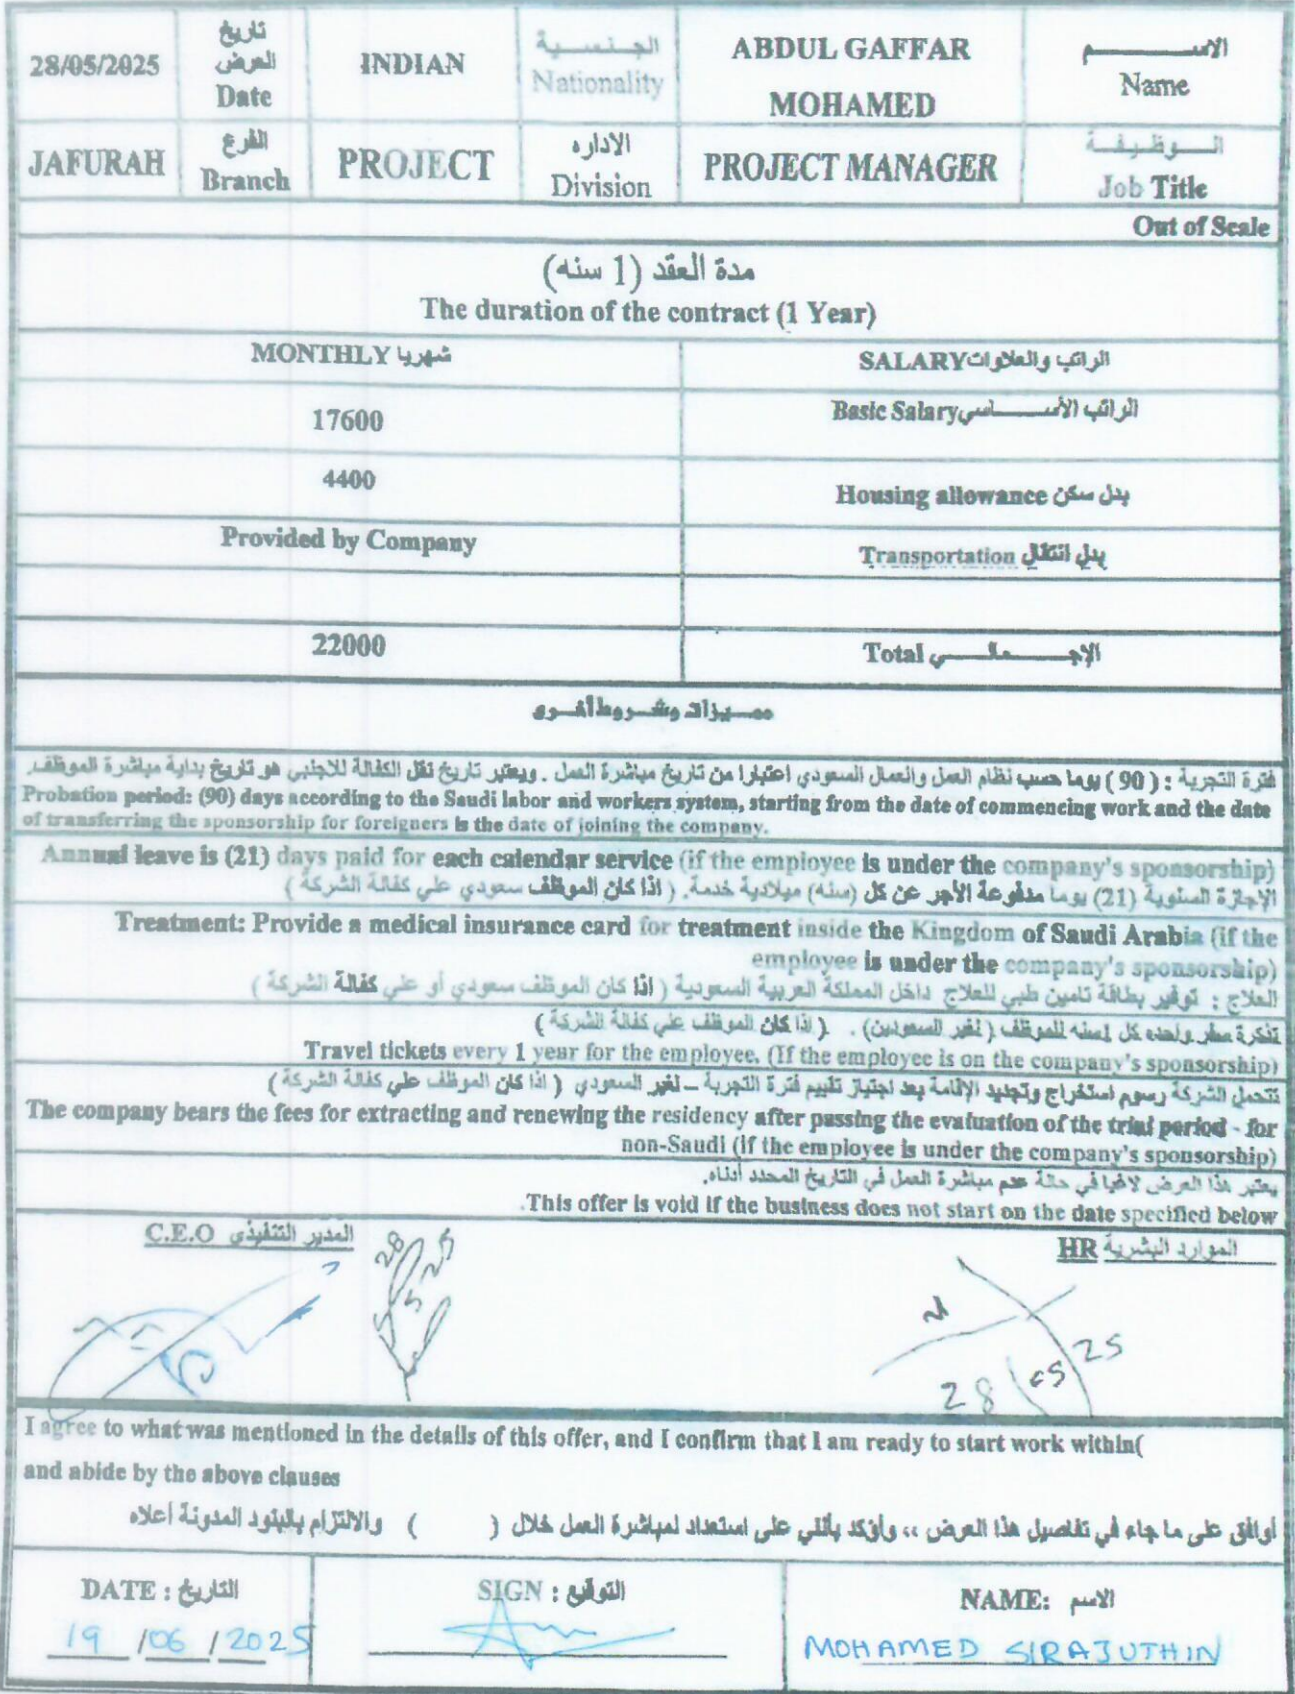 الاســــــم
Name
ABDUL GAFFAR
MOHAMED
الجنسية
Nationality
INDIAN
تاريخ
العرض
Date
28/05/2025
الوظيفة
Job Title
PROJECT MANAGER
الاداره
Division
PROJECT
الفرع
Branch
JAFURAH
Out of Scale
مدة العقد (1 سنه)
The duration of the contract (1 Year)
الراتب والعلاوات SALARY
MONTHLY شهريا
الراتب الأســــــاسي Basic Salary
17600
Housing allowance بدل سكن
4400
Transportation بدل انتقال
Provided by Company
الاجــــمــــالــــي Total
22000
ممــيزات وشــروط أخــرى
فترة التجربة : ( 90 ) يوما حسب نظام العمل والعمال السعودي اعتبارا من تاريخ مباشرة العمل . ويعتبر تاريخ نقل الكفالة للاجنبي هو تاريخ بداية مباشرة الموظف.
Probation period: (90) days according to the Saudi labor and workers system, starting from the date of commencing work and the date
of transferring the sponsorship for foreigners is the date of joining the company.
Annual leave is (21) days paid for each calendar service (if the employee is under the company's sponsorship)
الإجازة السنوية (21) يوما مدفوعة الأجر عن كل (سنه) ميلادية خدمة. ( اذا كان الموظف سعودي علي كفالة الشركة )
Treatment: Provide a medical insurance card for treatment inside the Kingdom of Saudi Arabia (if the
employee is under the company's sponsorship)
العلاج : توفير بطاقة تامين طبي للعلاج داخل المملكة العربية السعودية ( اذا كان الموظف سعودي أو علي كفالة الشركة )
تذكرة سفر واحده كل لسنه للموظف ( لغير السعودين) . ( اذا كان الموظف علي كفالة الشركة )
Travel tickets every 1 year for the employee. (If the employee is on the company's sponsorship)
تتحمل الشركة رسوم استخراج وتجديد الإقامة بعد اجتياز تقييم فترة التجربة – لغير السعودي ( اذا كان الموظف علي كفالة الشركة )
The company bears the fees for extracting and renewing the residency after passing the evaluation of the trial period - for
non-Saudi (if the employee is under the company's sponsorship)
يعتبر هذا العرض لاغيا في حالة عدم مباشرة العمل في التاريخ المحدد أدناه.
This offer is void if the business does not start on the date specified below.
الموارد البشرية HR
المدير التنفيذي C.E.O
28
5-25
28/05/25
I agree to what was mentioned in the details of this offer, and I confirm that I am ready to start work within(
and abide by the above clauses
أوافق على ما جاء في تفاصيل هذا العرض ،، وأؤكد بأنني على استعداد لمباشرة العمل خلال ( ) والالتزام بالبنود المدونة أعلاه
NAME: الاسم
MOHAMED SIRAJUTHIN
SIGN : التوقيع
DATE : التاريخ
19 /06 /2025